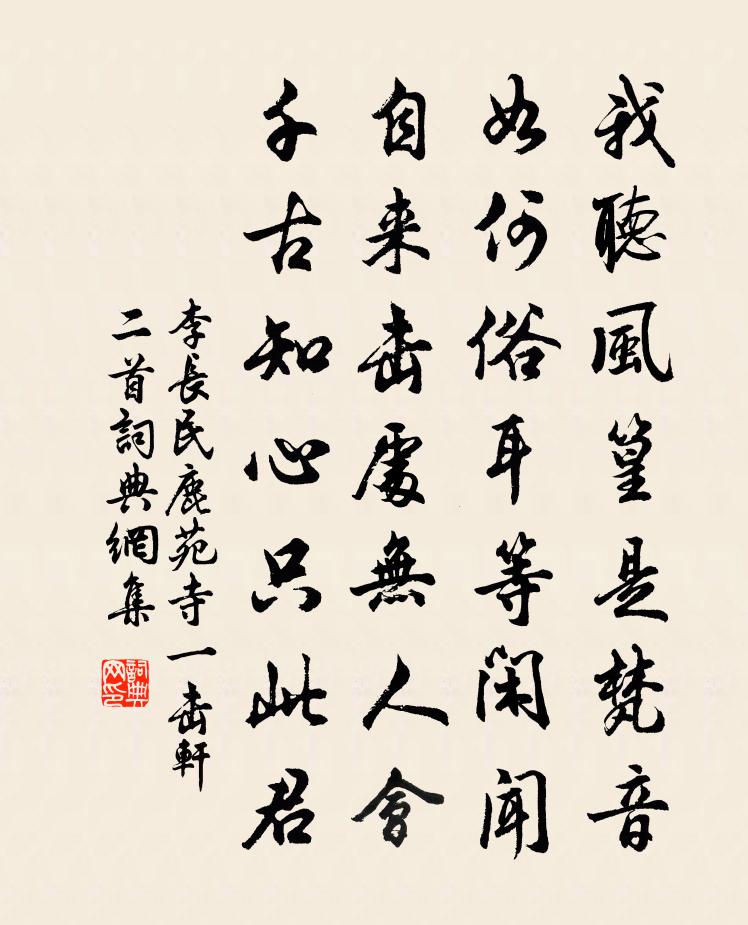 我聽風篁是梵音
如何俗耳等閑聞
自来击處無人會
千古知心只此君
李長民鹿苑寺一击軒
二首詞典網集
詞典网印